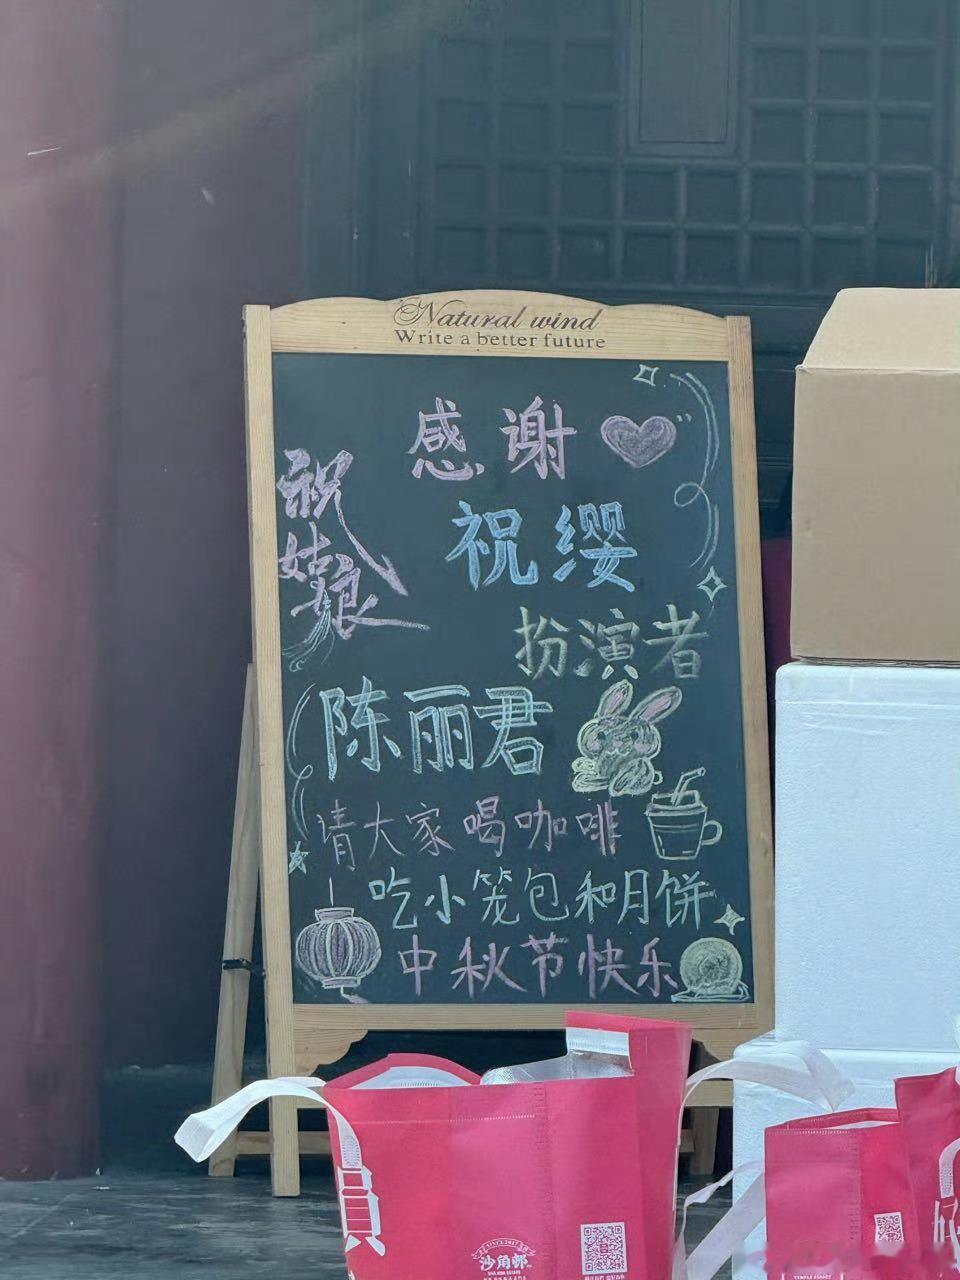 Natural wind
Write a better future
感谢
祝姑娘
祝缨
扮演者
陈丽君
请大家喝咖啡
吃小笼包和月饼
中秋节快乐
員
SINCE 2017
沙角邨